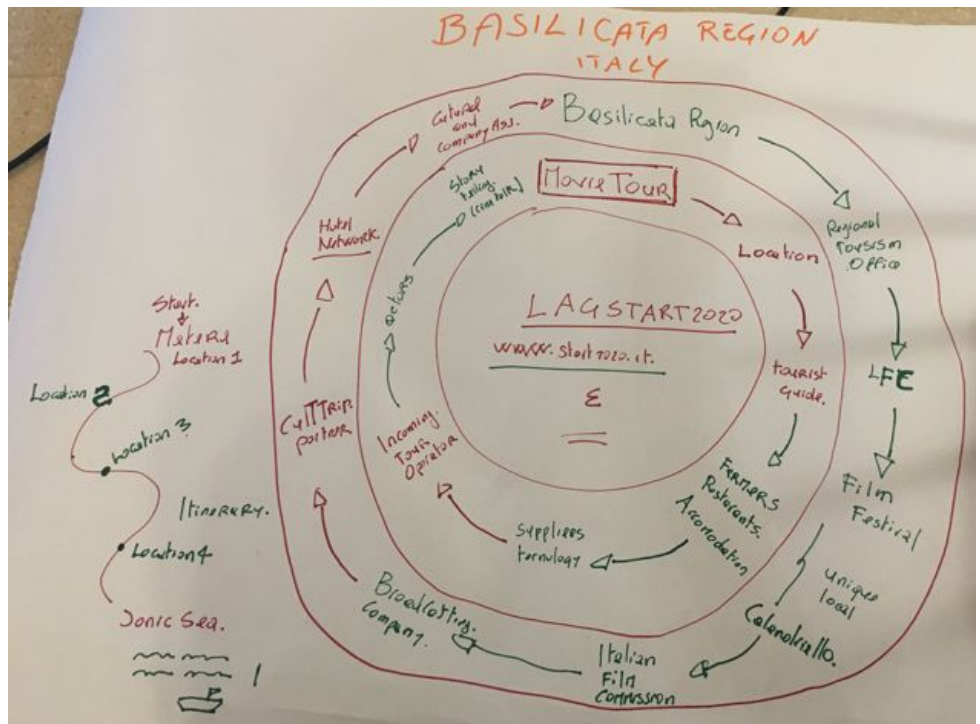 BASILICATA REGION
ITALY
Basilicata Region
Regional
Tourism
Office
LFE
Film
Festival
unique
local
Calandriello.
Italian
Film
Commission
Broadcasting.
Company.
CulTTrip
partner
Hotel
Network.
Cultural
and
Company Ass.
Movie Tour
Location
tourist
Guide.
FARMERS
Restorants.
Accomodation
Suppliers
tecnology
Incoming
Tour
Operator
pictures
Story
telling.
LAGSTART2020
www.start2020.it.
Start.
Matera
Location 1
Location 2
Location 3
Itinerary.
Location 4
Jonic Sea.